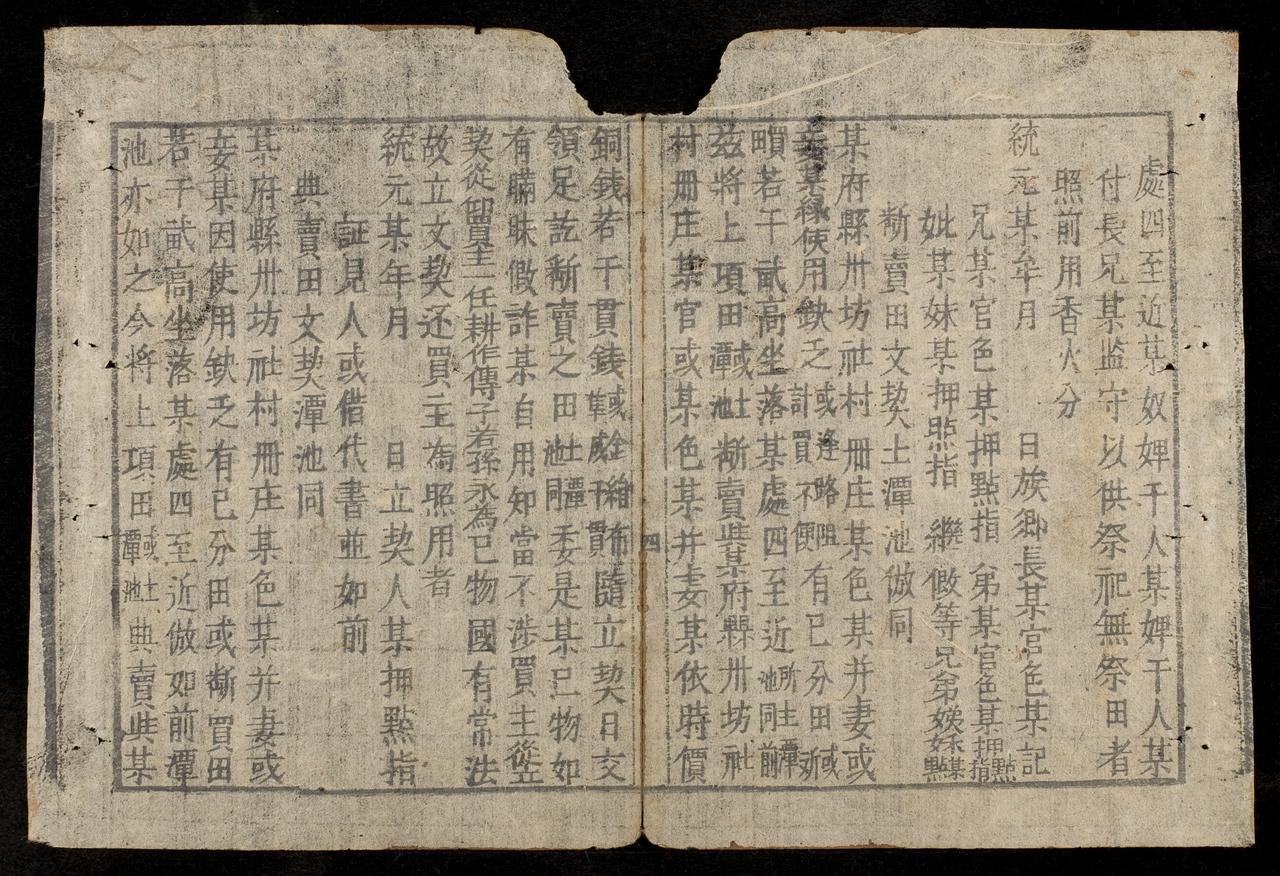 處四至近某奴婢千人某婢千人某
付長兄某监守以供祭祀無祭田者
照前用香火分
統元某年月　日族鄉長某官色某記
兄某官色某押點指　弟某官色某押點指
妣某妹某押點指　繼倣等兄弟娣妹某點
斷賣田文契土潭池倣同
某府縣州坊社村册庄某色某并妻或
妾某緣使用欽乏或逢路阻計買不便有已分田或
頃若干貳高坐落某處四至近所土潭池同前
茲將上項田或土潭池斷賣與某府縣州坊社
村册庄某官或某色某并妻某依時價
四
銅銭若干貫銭或金繒布隨立契日交
領足訖斷賣之田土潭池同委是某已物如
有瞞昧假詐某自用知當不涉買主從立
契從留置主一任耕作傳子若孫永為已物國有常法
故立文契还買主為照用者
統元某年月　日立契人某押點指
証見人或借代書並如前
典賣田文契潭池同
某府縣州坊社村册庄某色某并妻或
妾某因使用欽乏有已分田或斷買田
若干貳高坐落某處四至近倣如前潭
池亦如之今将上項田或土潭池典賣與某